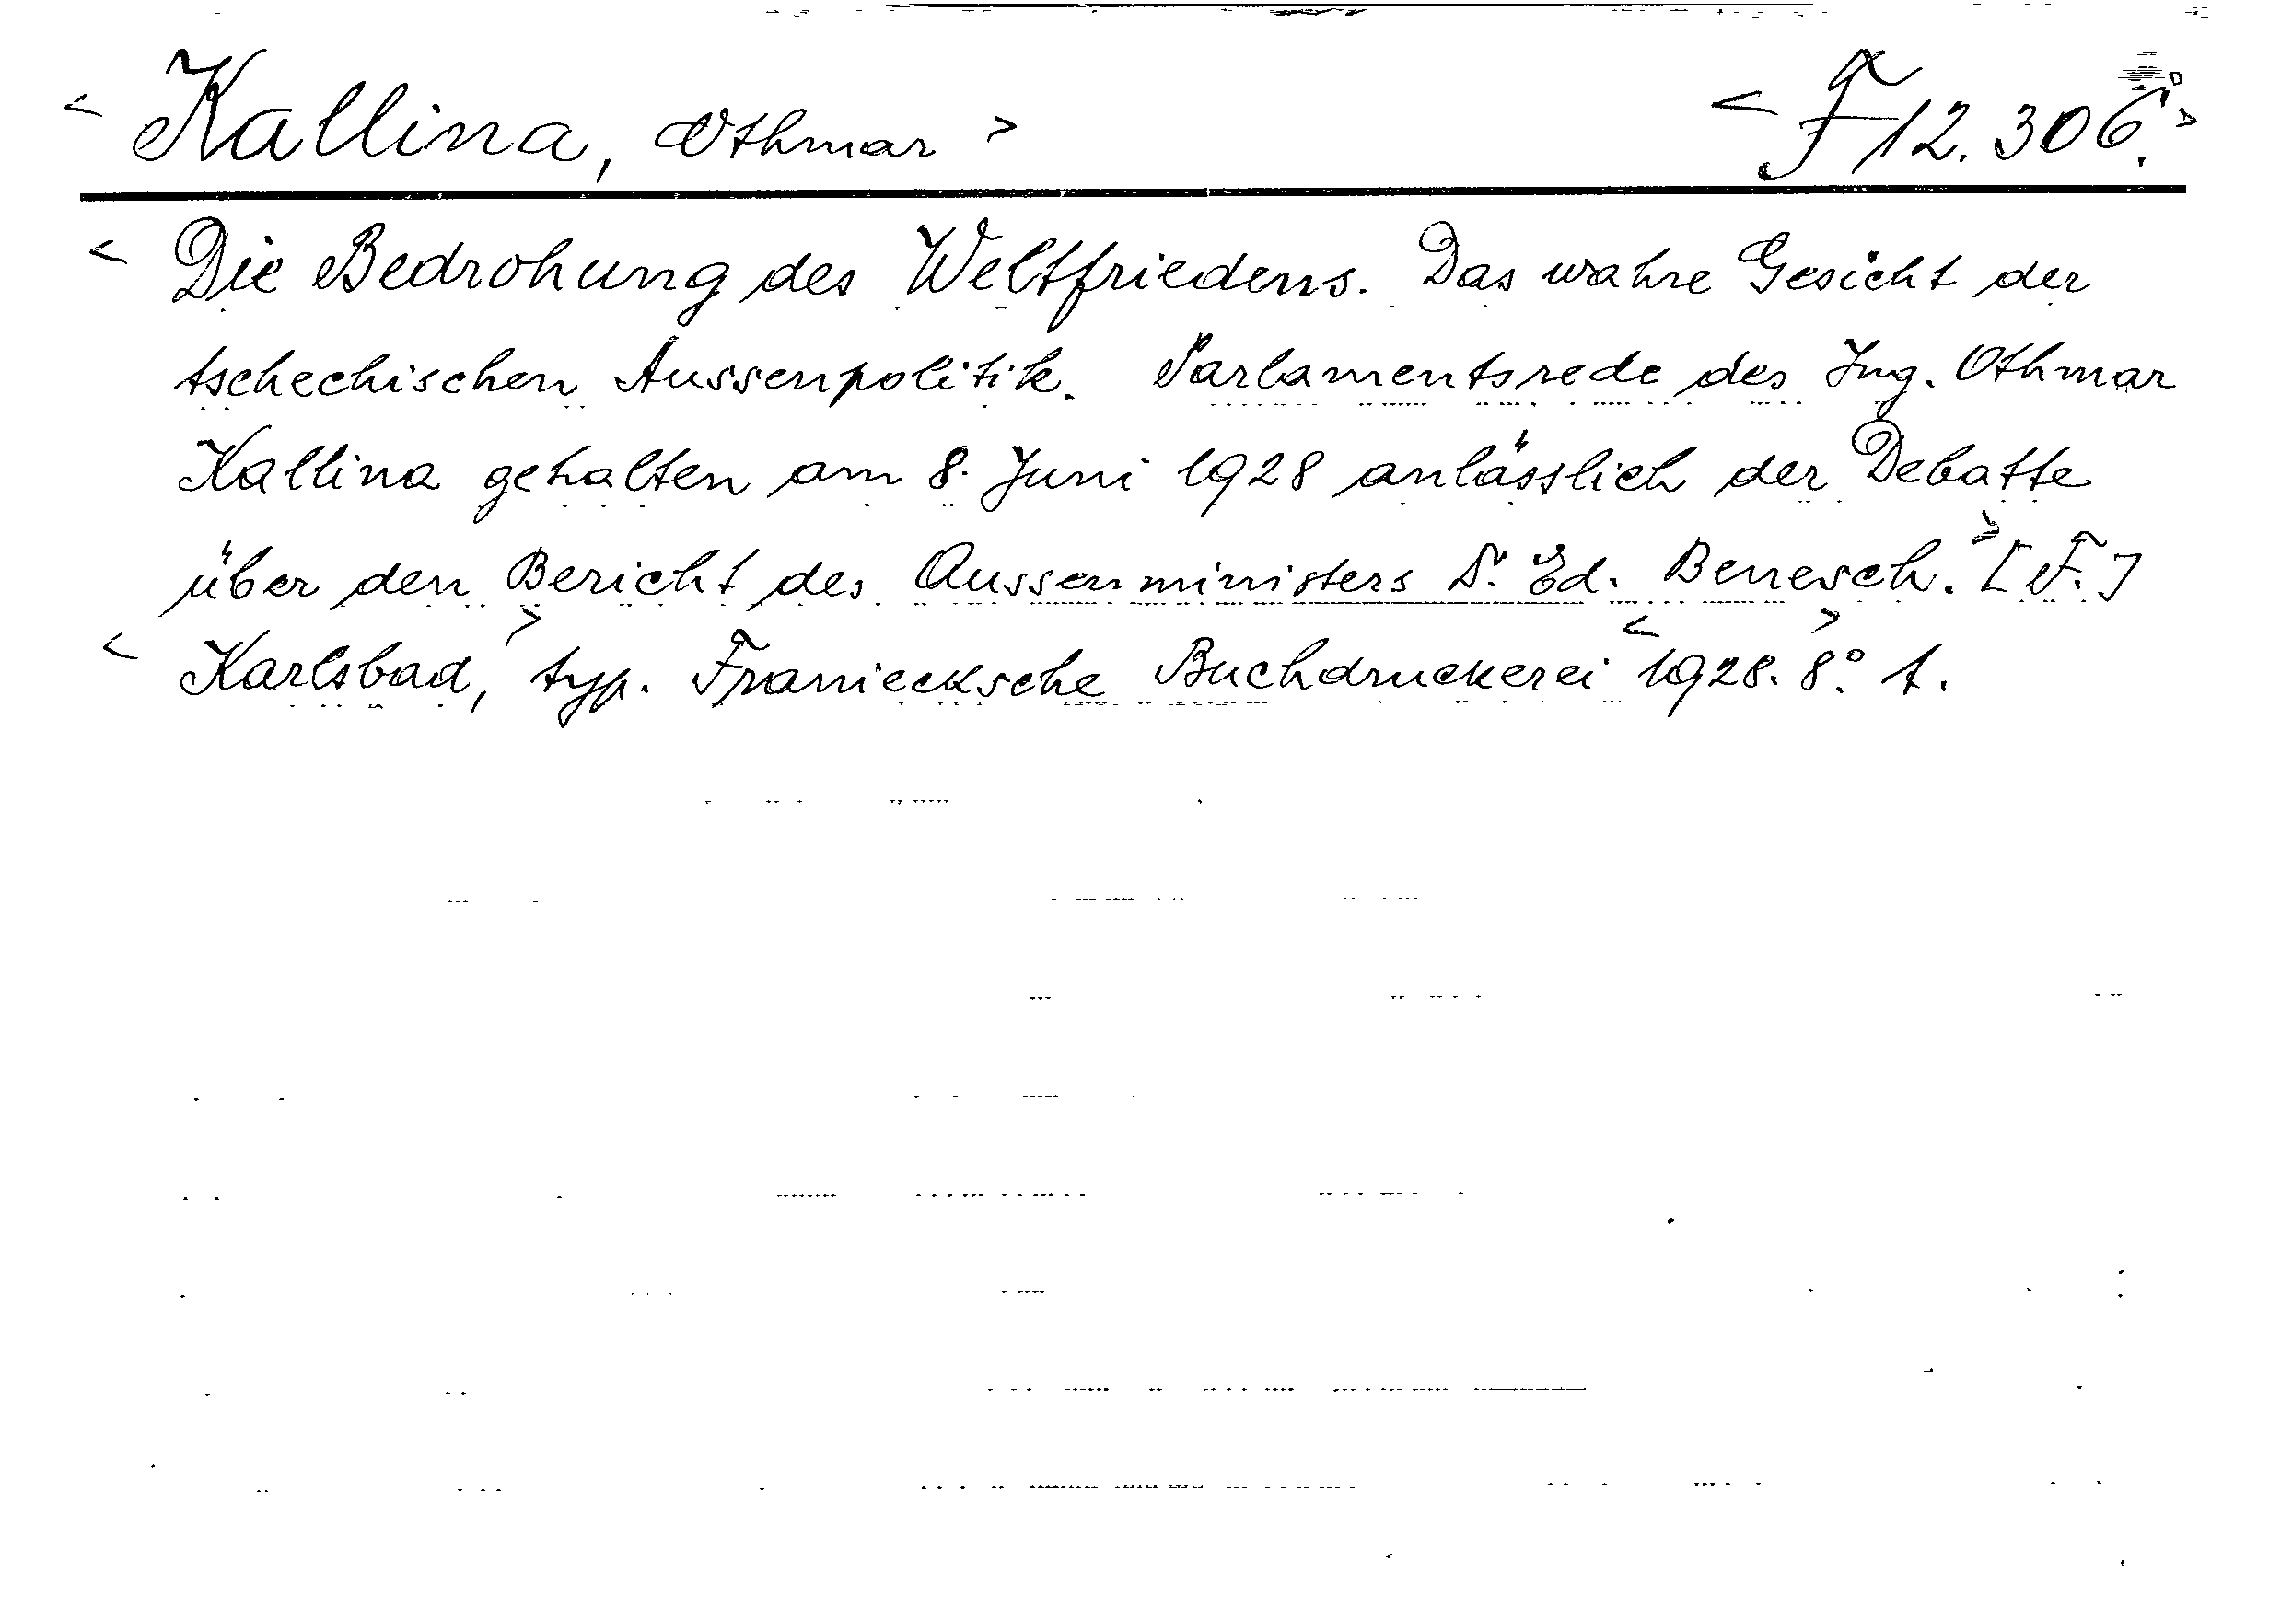 < Kallina, Othmar > < F 12.306.° >
< Die Bedrohung des Weltfriedens. Das wahre Gesicht der
tschechischen Aussenpolitik. Parlamentsrede des Ing. Othmar
Kallina gehalten am 8. Juni 1928 anlässlich der Debatte
über den Bericht des Aussenministers D. Ed. Benesch. > [F.]
< Karlsbad, > typ. Franiecksche Buchdruckerei < 1928. > 8.° 1.